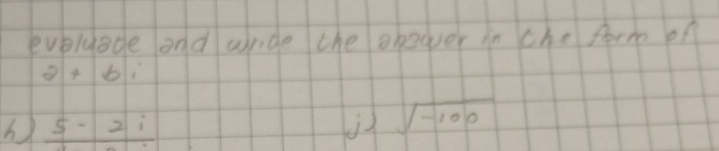 evaluate and write the answer in the form of
a + bi
h) 5 - 2i j) √-100